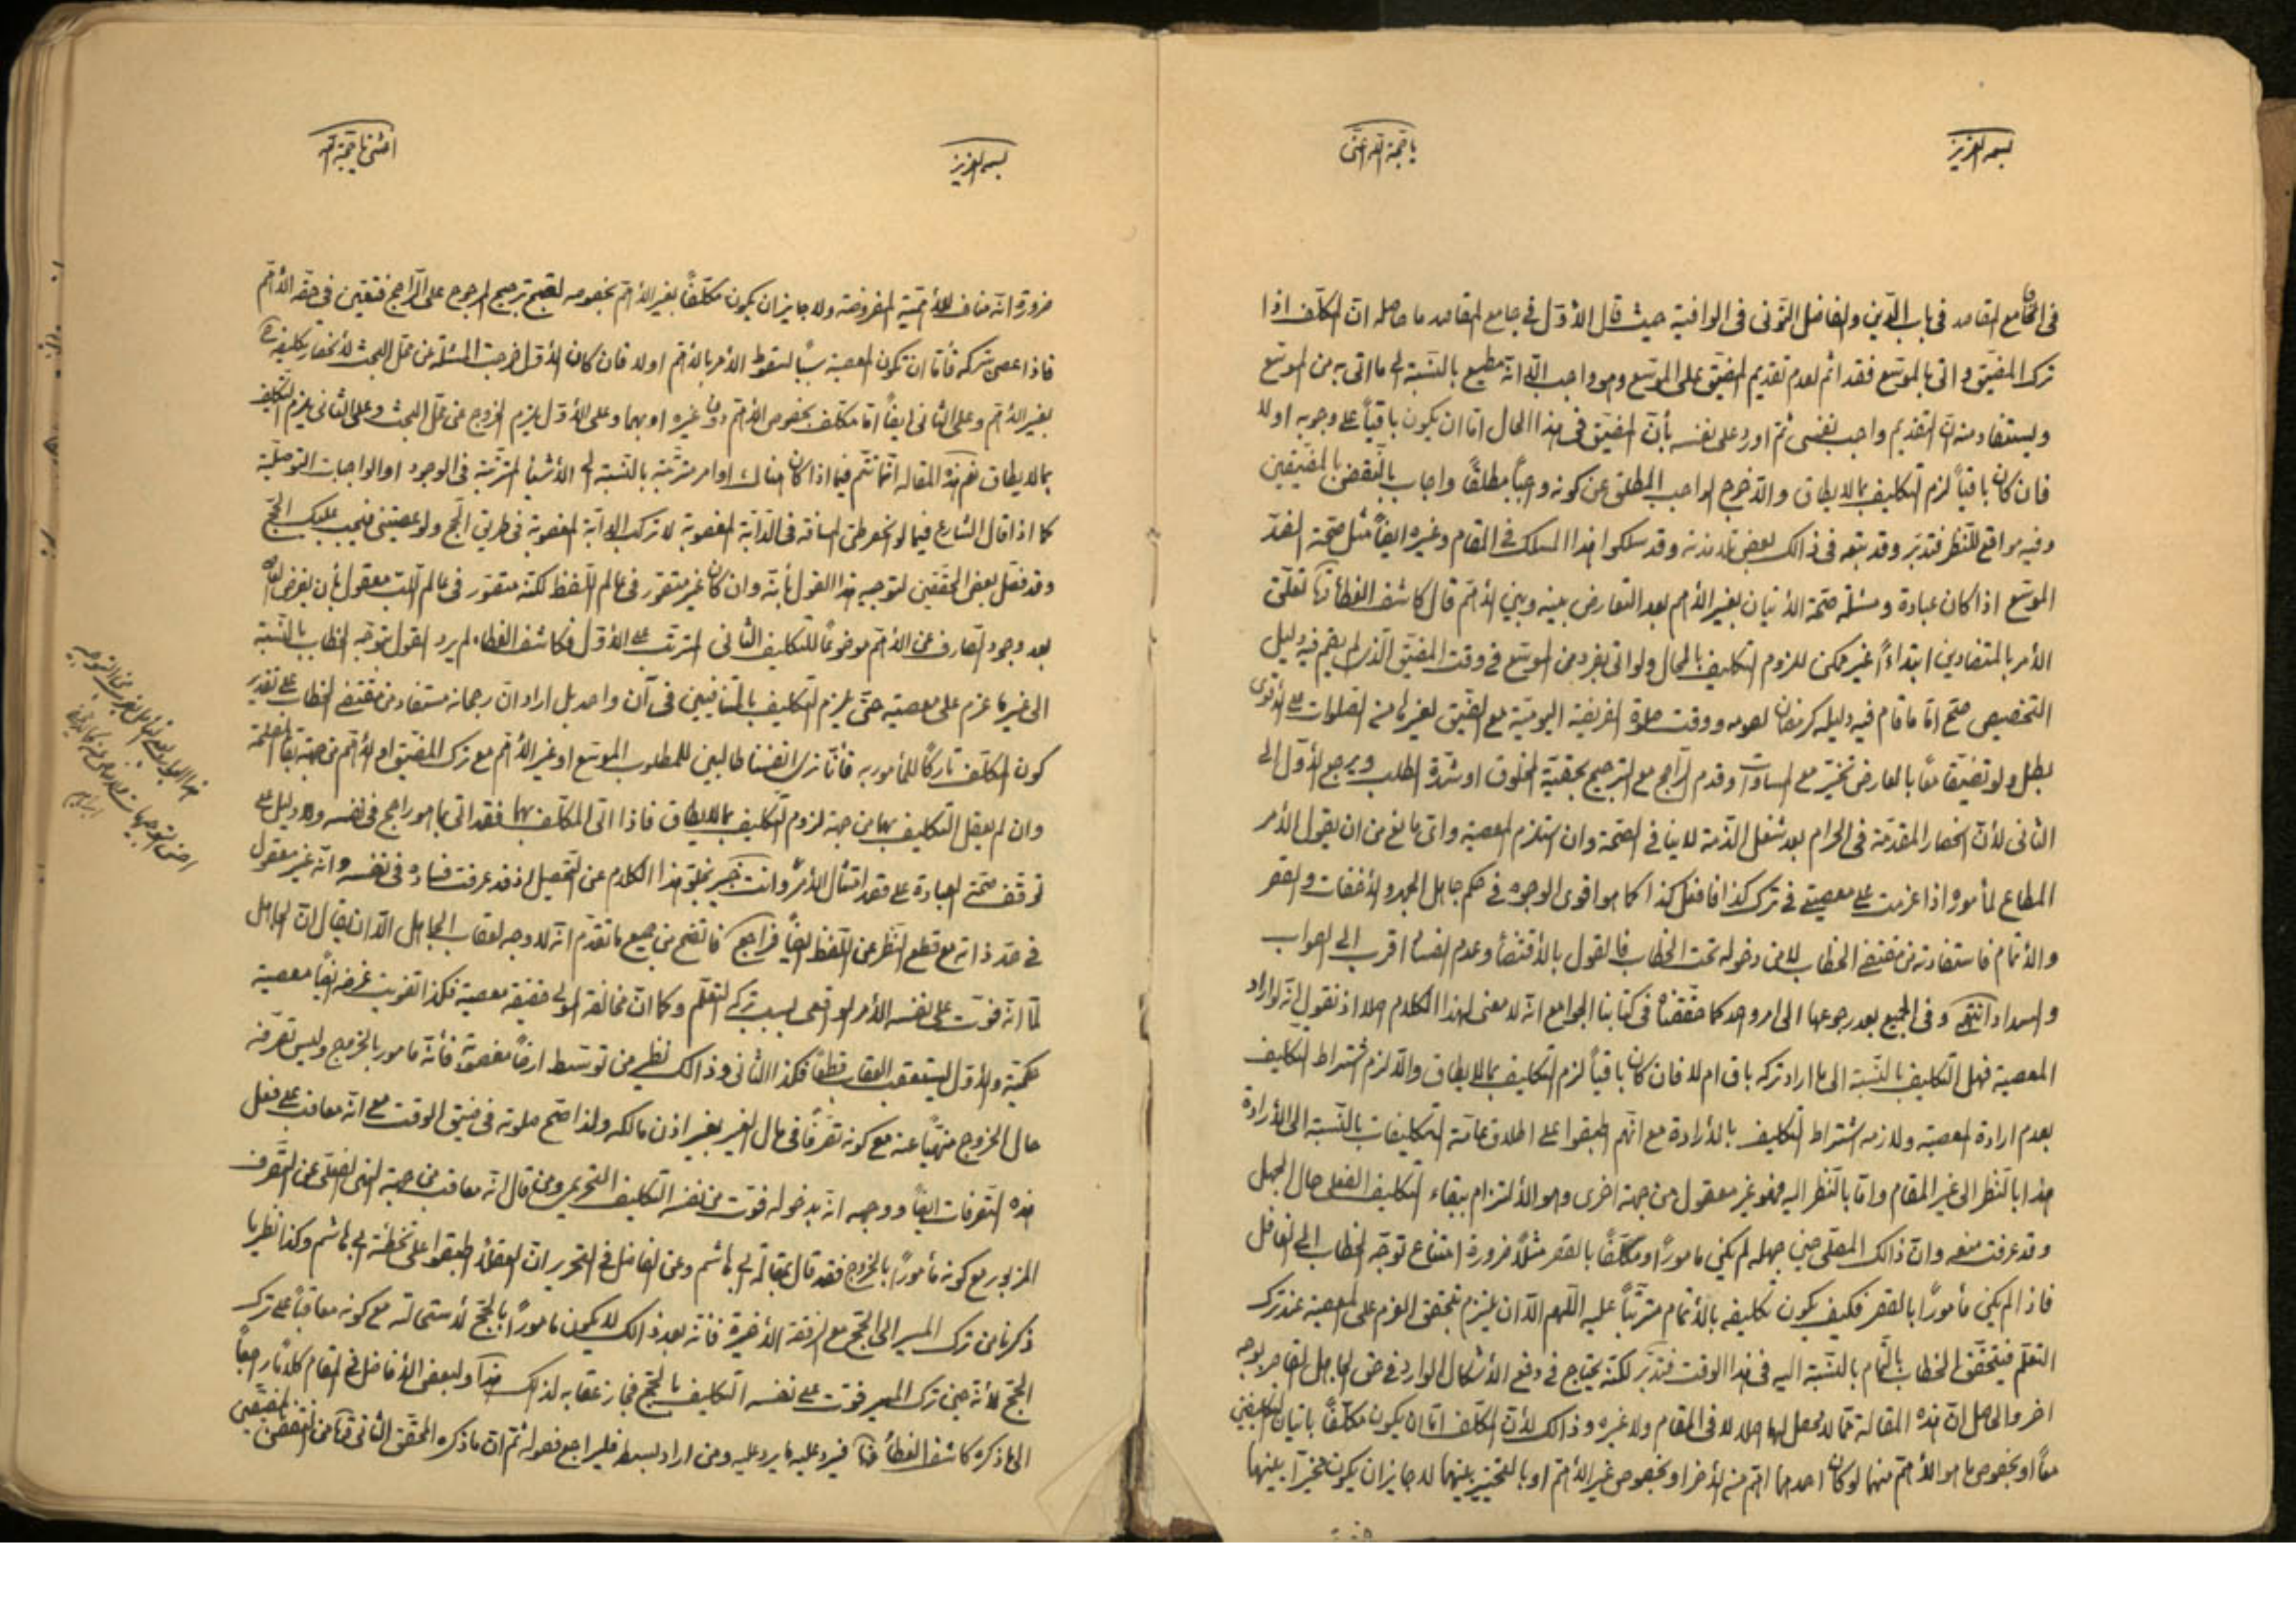 بسمه العزيز
يا حجة الله اغثنى
فى جامع المقاصد فى باب الدين والفاضل التونى فى الوافية حيث قال الأول فى جامع المقاصد ما حاصله ان المكلف اذا
ترك المضيق واتى بالموسع فقد اثم لعدم تقديم المضيق على الموسع وهو واجب الا انه مطيع بالنسبة الى ما اتى به من الموسع
ويستفاد منه ان التقديم واجب نفسى ثم اورد على نفسه بأن المضيق فى هذا الحال اما ان يكون باقياً على وجوبه اولا
فان كان باقياً لزم التكليف بما لا يطاق والا خرج الواجب المطلق عن كونه واجباً مطلقاً واجاب بالنقض بالمضيقين
وفيه مواقع للنظر فتدبر وقد تبعه فى ذالك بعض تلامذته وقد سلكوا هذا المسلك فى المقام وغيره ايضاً مثل صحة الضد
الموسع اذا كان عبادة ومسئلة صحة الأتيان بغير الأهم بعد التعارض بينه وبين الأهم قال كاشف الغطاء تعلق
الأمر بالمتضادين ابتداءً غير ممكن للزوم التكليف بالمحال ولو اتى بفرد من الموسع فى وقت المضيق الذى لم يقم فيه دليل
التخصيص صح اما ما قام فيه دليله كرمضان لصومه ووقت صلوة الفريضة اليومية مع الضيق لغيرها من الصلوات على الأقوى
بطل ولو تضيقا معاً بالعارض تخير مع المساوات وقدم الراجح مع الترجيح بحقية المخلوق او شدة الطلب ويرجع الأول الى
الثانى لأن انحصار المقدمة فى الحرام بعد شغل الذمة لا ينافى الصحة وان استلزم المعصية واى مانع من ان يقول الأمر
المطاع لمأموره اذا عزمت على معصيتى فى ترك كذا فافعل كذا كما هو اقوى الوجوه فى حكم جاهل الجهر والأخفات والقصر
والأتمام فاستفادته من مقتضى الخطاب لا من دخوله تحت الخطاب فالقول بالأقتضاء وعدم الفساد اقرب الى الصواب
والسداد انتهى وفى الجميع بعد رجوعها الى امر واحد كما حققناه فى كتابنا الجوامع انه لا معنى لهذا الكلام اصلا اذ نقول انه لو اراد
المعصية فهل التكليف بالنسبة الى ما اراد تركه باق ام لا فان كان باقياً لزم التكليف بما لا يطاق والا لزم اشتراط التكليف
بعدم ارادة المعصية ولازمه اشتراط التكليف بالأرادة مع انهم اطبقوا على اطلاق عامة التكليفات بالنسبة الى الأرادة
هذا بالنظر الى غير المقام واما بالنظر اليه فهو غير معقول من جهة اخرى وهو الألتزام ببقاء التكليف الفعلى حال الجهل
وقد عرفت منعه وان ذالك المصلى حين جهله لم يكن مأموراً ومكلفاً بالقصر مثلاً ضرورة امتناع توجه الخطاب الى الغافل
فاذا لم يكن مأموراً بالقصر فكيف يكون تكليفه بالأتمام مترتباً عليه اللهم الا ان يلتزم بتحقق العزم على المعصية عند ترك
التعلم فيتحقق الخطاب بالتمام بالنسبة اليه فى هذا الوقت فتدبر لكنه يحتاج فى دفع الأشكال الوارد فى حق الجاهل القاصر بوجه
اخر والحاصل ان هذه المقالة مما لا محصل لها اصلا لا فى المقام ولا غيره وذالك لأن المكلف اما ان يكون مكلفاً باتيان التكليفين
معاً او بخصوص ما هو الأهم منهما لو كان احدهما اهم من الأخر او بخصوص غير الأهم او بالتخيير بينهما لا جايز ان يكون مخيراً بينهما
بسمه العزيز
اغثنى يا حجة الله
ضرورة انه مناف للأهمية المفروضة ولا جايز ان يكون مكلفاً بغير الأهم بخصوصه لقبح ترجيح المرجوح على الراجح فتعين فى حقه الأهم
فاذا عصى بتركه فأما ان تكون المعصية سبباً لسقوط الأمر بالأهم اولا فان كان الأول خرجت المسئلة عن محل البحث لأنحصار تكليفه
بغير الأهم وعلى الثانى ايضاً اما مكلف بخصوص الأهم دون غيره او بهما وعلى الأول يلزم الخروج عن محل البحث وعلى الثانى يلزم التكليف
بما لا يطاق نعم هذه المقالة انما تتم فيما اذا كان هناك اوامر مترتبة بالنسبة الى الأشياء المترتبة فى الوجود او الواجبات التوصلية
كما اذا قال الشارع فيما لو انحصر طى المسافة فى الدابة المغصوبة لا تركب الدابة المغصوبة فى طريق الحج ولو عصيتنى فيجب عليك الحج
وقد تفصى بعض المحققين لتوجيه هذا القول بأنه وان كان غير متصور فى عالم اللفظ لكنه متصور فى عالم اللب معقول بأن يفرض
بعد وجود الصارف عن الأهم موضوعاً للتكليف الثانى المترتب على الأول فكاشف الغطاء لم يرد القول بتوجه الخطاب بالنسبة
الى غير ما عزم على معصيته حتى يلزم التكليف بالمتنافيين فى آن واحد بل اراد ان رجحانه مستفاد من مقتضى الخطاب على تقدير
كون المكلف تاركاً للمأمور به فأنا نرى انفسنا طالبين للمطلوب الموسع او غير الأهم مع ترك المضيق او الأهم من جهة بقاء المصلحة
وان لم يعقل التكليف بهما من جهة لزوم التكليف بما لا يطاق فاذا اتى المكلف بها فقد اتى بما هو راجح فى نفسه ولا دليل على
توقف صحة العبادة على قصد امتثال الأمر وانت خبير بخلو هذا الكلام عن التحصيل اذ قد عرفت فساده فى نفسه وانه غير معقول
فى حد ذاته مع قطع النظر عن اللفظ ايضاً فراجع فاتضح من جميع ما تقدم انه لا وجه لعقاب الجاهل الا ان يقال ان الجاهل
لما انه فوت على نفسه الأمر الواقعى بسبب تركه لتعلم وكما ان مخالفة المولى حقيقة معصية فكذا تفويت غرضه ايضاً معصية
حكمية والأول يستعقب العقاب قطعاً فكذا الثانى وذالك نظير من توسط ارضاً مغصوبة فأنه مأمور بالخروج وليس تصرفه
حال الخروج منهياً عنه مع كونه تصرفاً فى مال الغير بغير اذن مالكه ولذا تصح صلوته فى ضيق الوقت مع انه معاقب على فعل
هذه التصرفات ايضاً ووجهه انه بدخوله فوت من نفسه التكليف التحريمى ومن قال انه معاقب من جهة النهى الفعلى عن التصرف
المزبور مع كونه مأموراً بالخروج فقد قال بمقالة ابى هاشم وعن الفاضل فى التحرير ان العقلاء اطبقوا على تخطئة ابى هاشم وكذا نظير ما
ذكرنا من ترك المسير الى الحج مع الرفقة الأخيرة فانه بعد ذالك لا يكون مأموراً بالحج لأستحالته مع كونه معاقباً على ترك
الحج لأنه حين ترك المسير فوت على نفسه التكليف بالحج فجاز عقابه لذالك هذا ولبعض الأفاضل فى المقام كلام راجع
الى ما ذكره كاشف الغطاء هنا فيرد عليه ما يرد عليه ومن اراد بسطه فليراجع فصوله ثم ان ما ذكره المحقق الثانى من النقض بالمضيقين